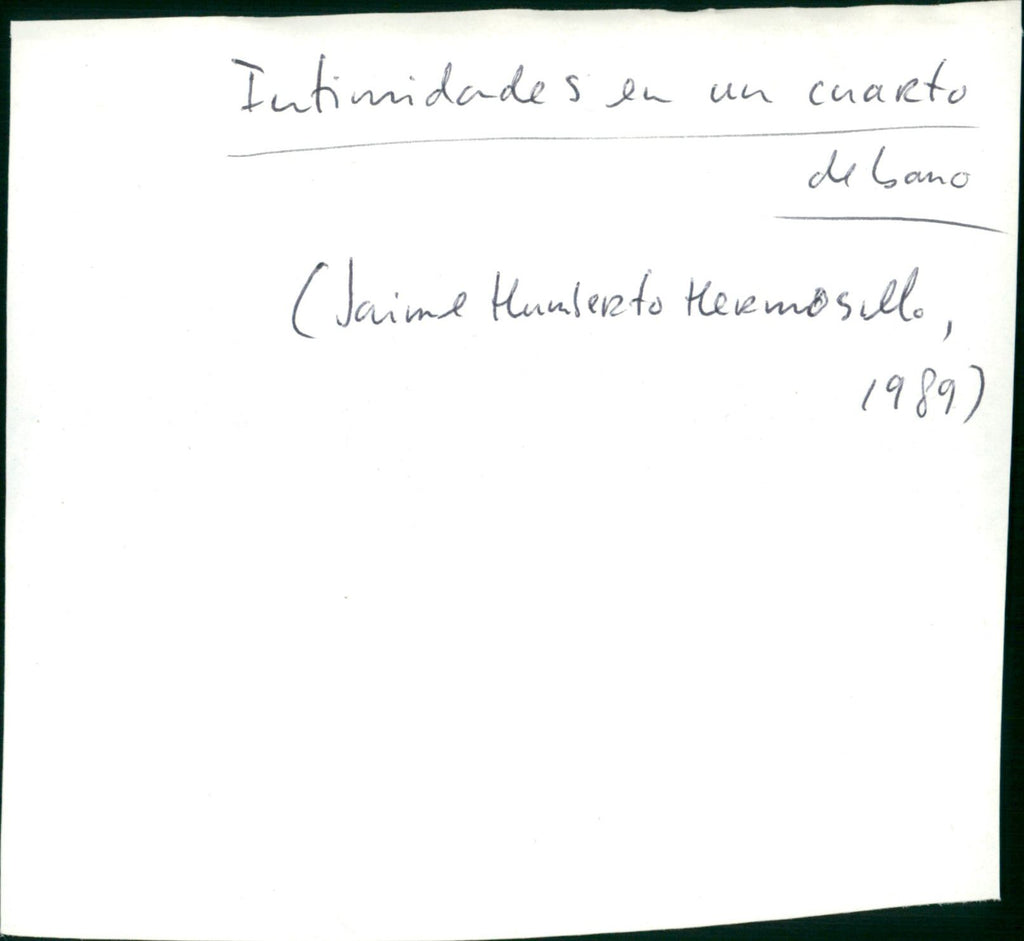 Intimidades en un cuarto
de bano
(Jaime Humberto Hermosillo,
1989)